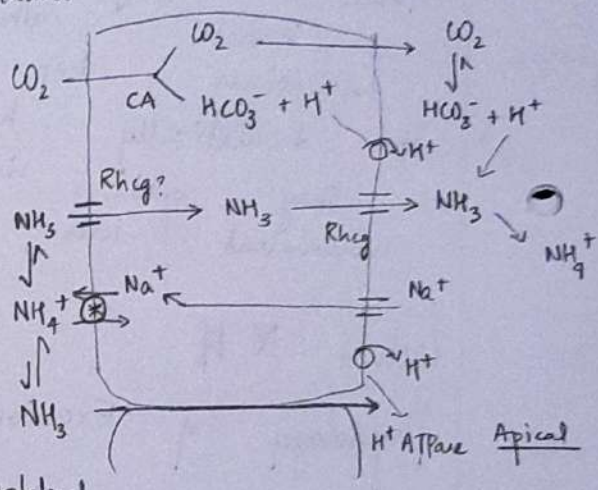 CO₂
CO₂
CO₂
CA
HCO₃⁻ + H⁺
HCO₃⁻ + H⁺
H⁺
Rhcg?
NH₃
NH₃
NH₃
Rhcg
NH₄⁺
Na⁺
Na⁺
NH₄⁺
*
H⁺
NH₃
H⁺ ATPase Apical